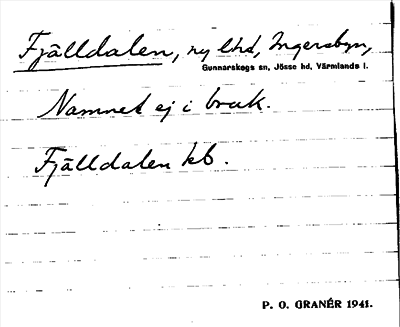 Fjälldalen, ny lhd, Ingersbyn,
Gunnarskogs sn, Jösse hd, Värmlands l.
Namnet ej i bruk.
Fjälldalen kb.
P. O. GRANÉR 1941.